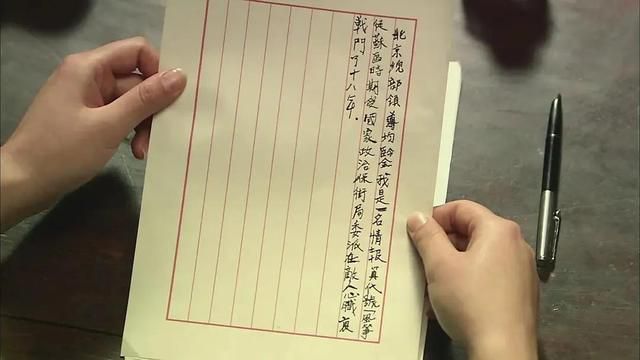 北京总部領導均鑒我是一名情報員代號「風箏
從蘇區時期經國家政治保衛局委派在敵人心臟裏
戰鬥了十八年。